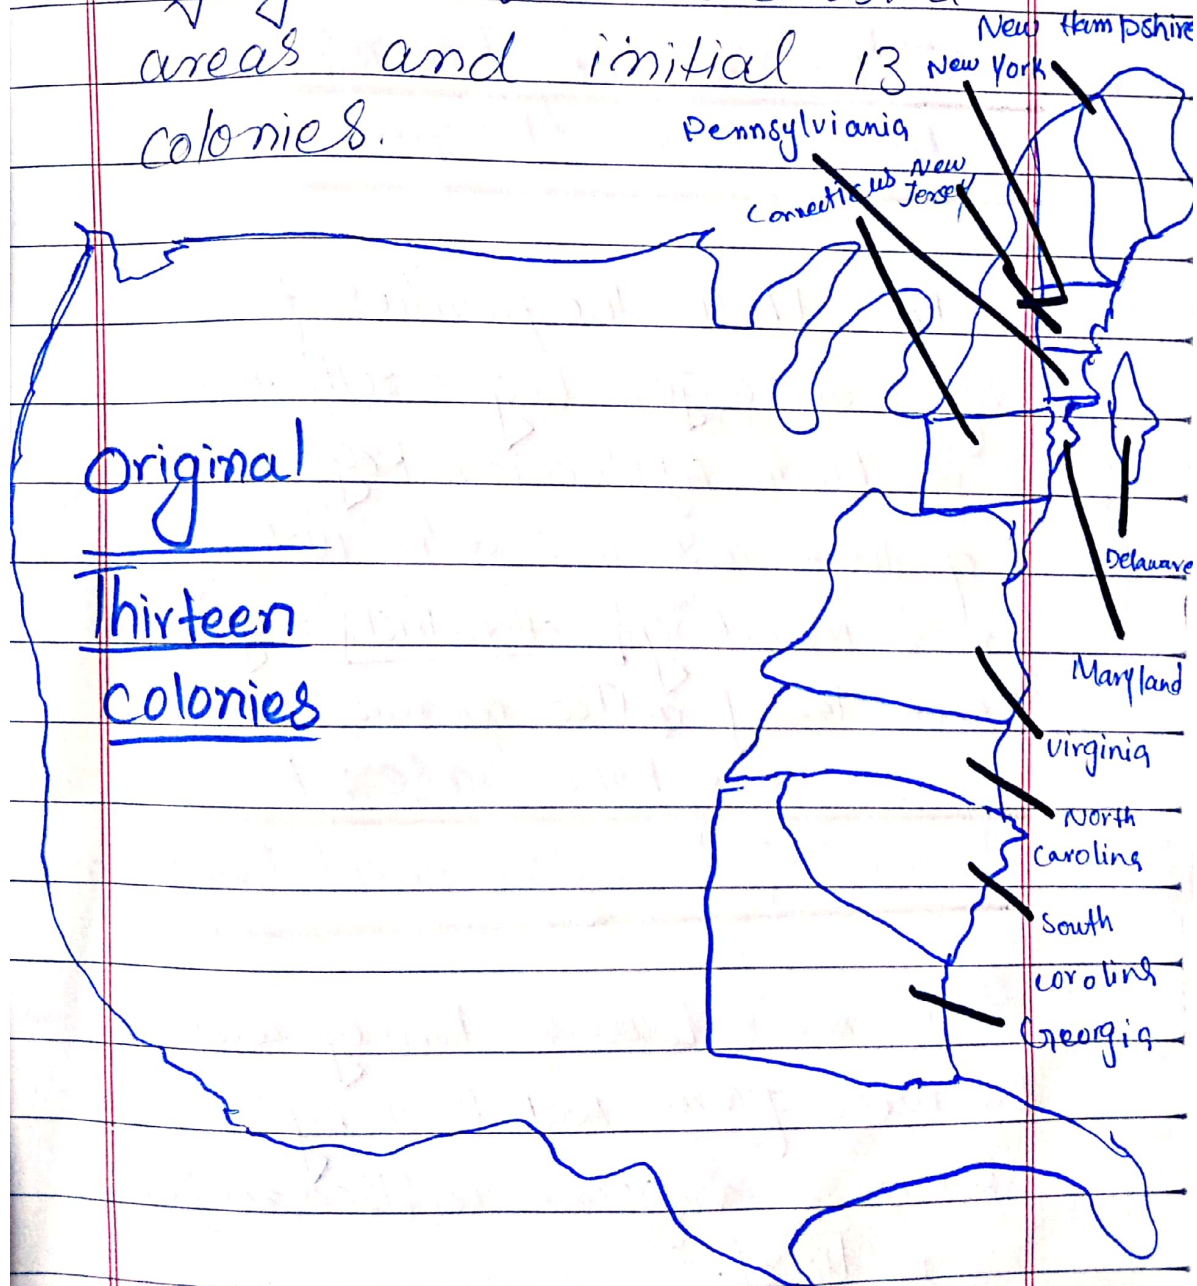 areas and initial 13
colonies.
New Hampshire
New York
Pennsylviania
New
Jersey
Connecticus
Original
Thirteen
colonies
Delaware
Maryland
virginia
North
carolina
South
corolina
Georgia